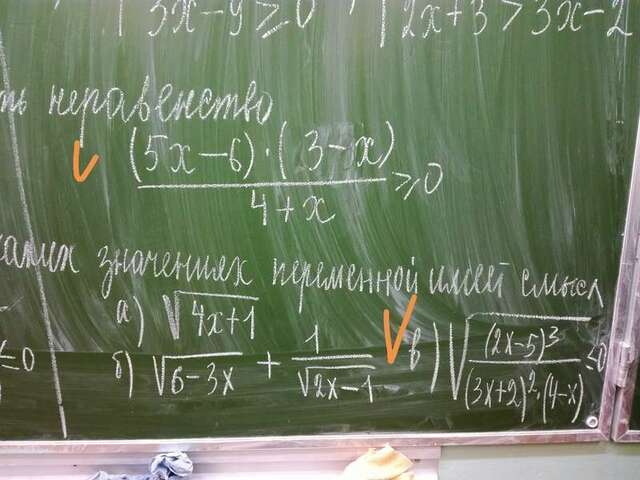 3x-9≥0 2x+3>3x-2
ть неравенство
(5x-6)·(3-x)
4+x ≥0
значениях переменной имеет смысл
а) √4x+1
≤0
б) √6-3x + 1/√2x-1 в) √(2x-5)³/(3x+2)²·(4-x) ≤0